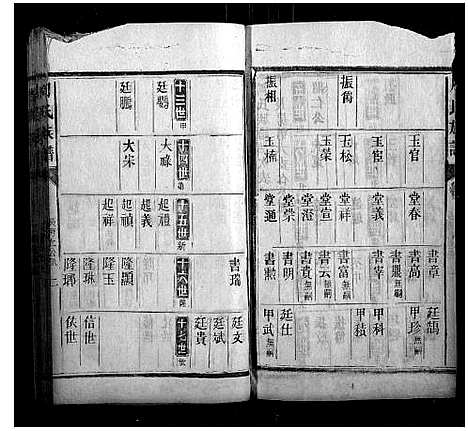 振儁
振相
玉官
玉宦
玉松
玉榮
玉楠
堂春
堂義
堂祥
堂宣
堂澄
堂崇
堂通
書章
書嵩
書嚴 無嗣
書宰
書富 無嗣
書云 無嗣
書貴 無嗣
書明
書勲
廷鵠
甲珍 無嗣
甲科
甲積
廷仕
甲武 無嗣
書瑞
廷文
廷斌
廷貴
十三世
廷鶚
廷鵬
十四世
大祿
大宋
十五世
起禮
起義
起禎
起祥
十六世
隆顯
隆玉
隆琳
隆瑯
十七世
信世
伙世
氏族譜